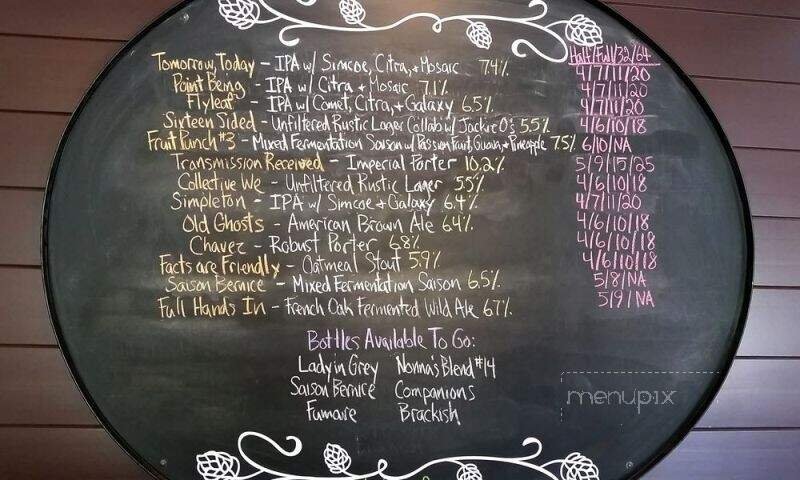 Half/Full/32/64
Tomorrow, Today - IPA w/ Simcoe, Citra, + Mosaic 7.4% 4/7/11/20
Point Being - IPA w/ Citra + Mosaic 7.1% 4/7/11/20
Flyleaf - IPA w/ Comet, Citra, + Galaxy 6.5% 4/7/11/20
Sixteen Sided - Unfiltered Rustic Lager Collab w/ Jackie O's 5.5% 4/6/10/18
Fruit Punch #3 - Mixed Fermentation Saison w/ Passion Fruit, Guava, + Pineapple 7.5% 6/10/NA
Transmission Received - Imperial Porter 10.2% 5/9/15/25
Collective We - Unfiltered Rustic Lager 5.5% 4/6/10/18
Simpleton - IPA w/ Simcoe + Galaxy 6.4% 4/7/11/20
Old Ghosts - American Brown Ale 6.4% 4/6/10/18
Chavez - Robust Porter 6.8% 4/6/10/18
Facts are Friendly - Oatmeal Stout 5.9% 4/6/10/18
Saison Bernice - Mixed Fermentation Saison 6.5% 5/8/NA
Full Hands In - French Oak Fermented Wild Ale 6.7% 5/9/NA
Bottles Available To Go:
Lady in Grey Nonna's Blend #14
Saison Bernice Companions
Fumaire Brackish
menupix